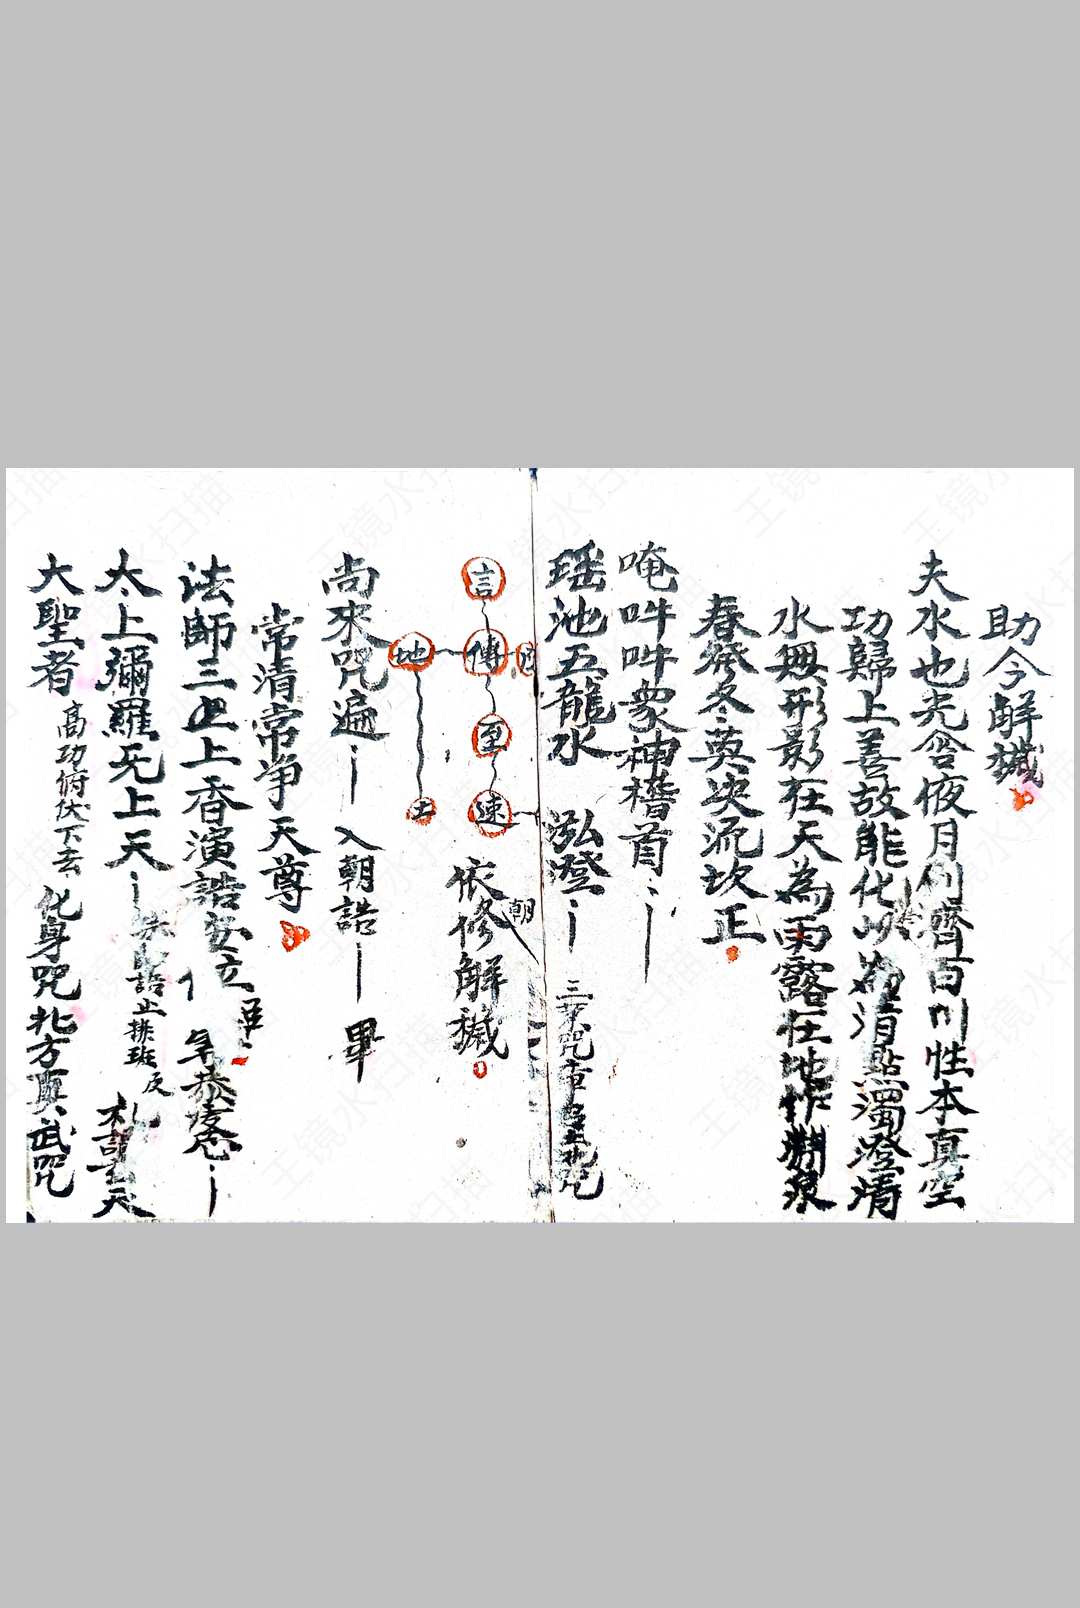 助令解穢
夫水也光含夜月利濟百川性本真空
功歸上善故能化以為消點濁澄清
水無形影在天為雨露在地作淵泉
春發冬英決流坎正
唵吽吽衆神稽首
瑶池五龍水 泓澄 三
言傳至速 依修解穢
朝
地
尚來咒遍 入朝誥 畢
常清常净天尊
法師三上香演誥 位
恭
太上彌羅无上天
誥止排班
天
大聖者 高功俯伏下云 化身咒北方真武咒